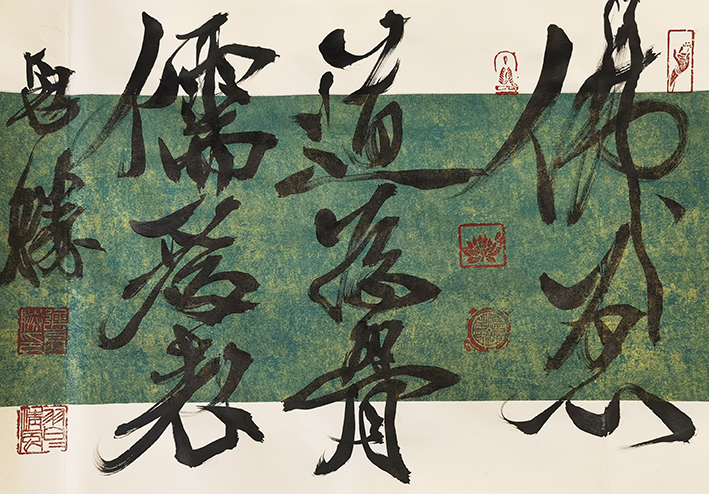 佛為心
道為骨
儒為表